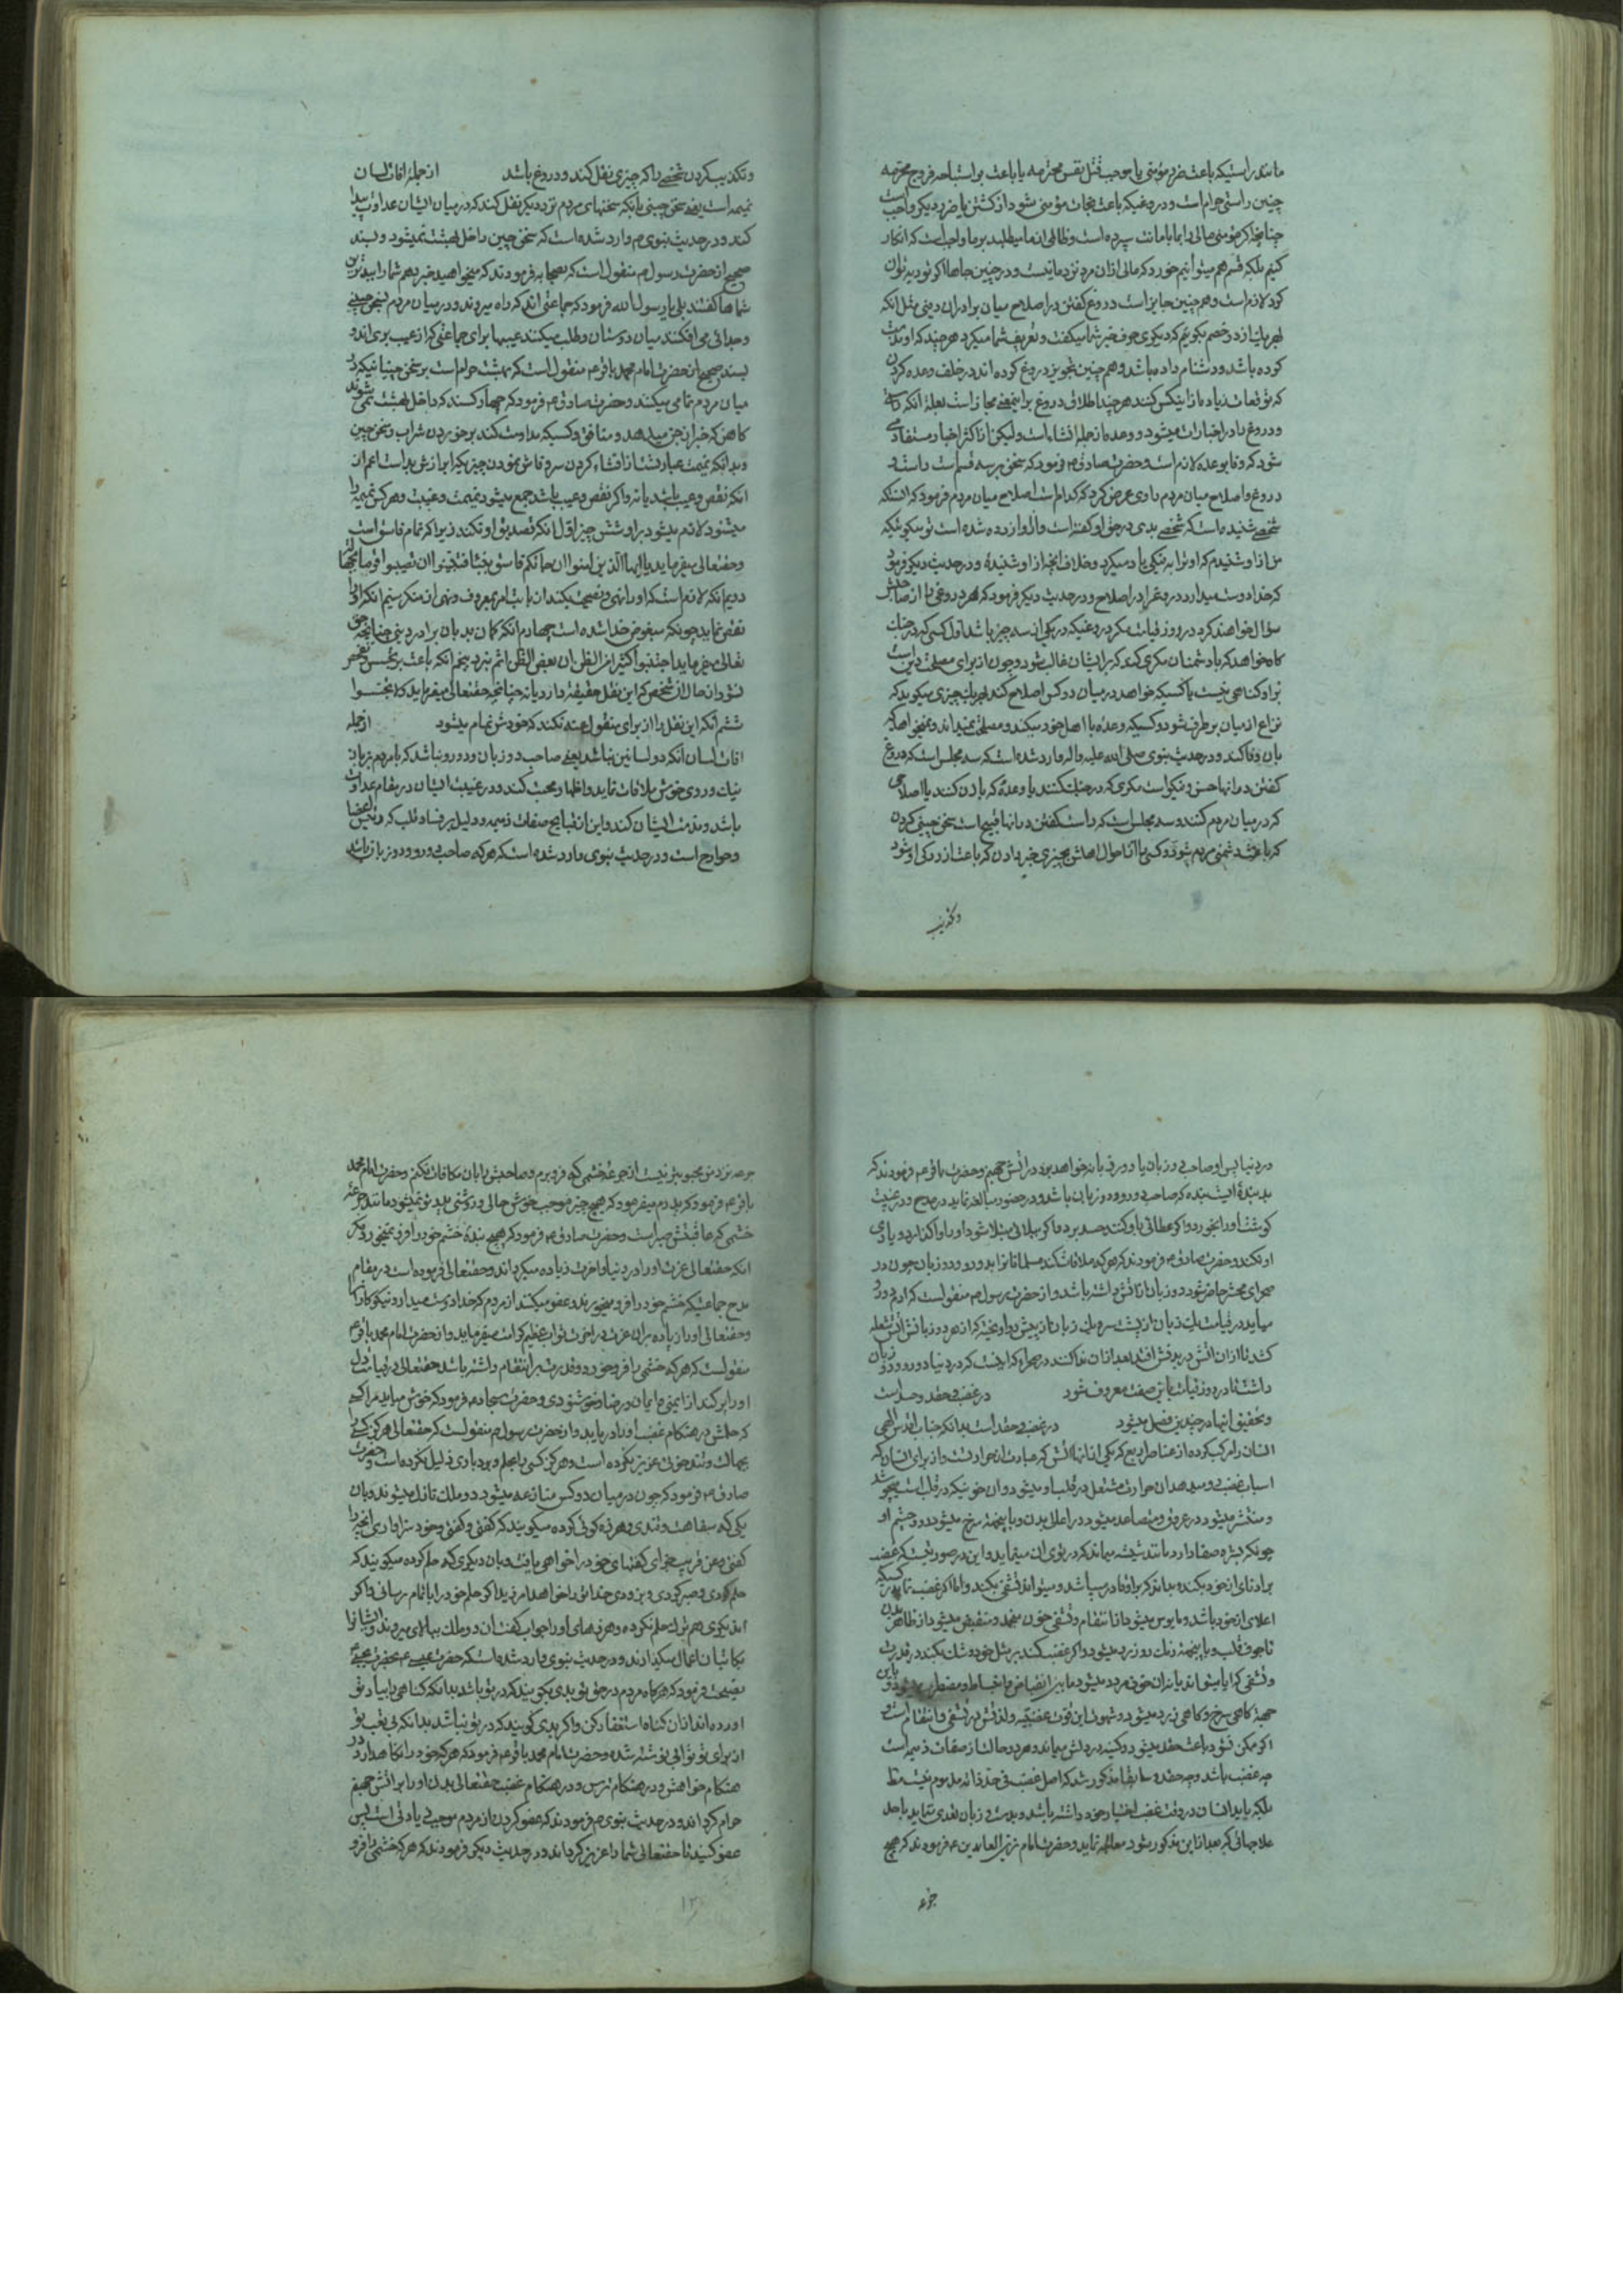 مانند راستیکه باعث ضرر مؤمنی یا موجب قتل نفس محترمه یا باعث بر استباحه فروج محترمه
چنین راستی حرام است و دروغیکه باعث نجات مؤمنی شود از کشتن یا ضرر دیکر واجب است
چنانچه اکر مؤمنی مالی را بما بامانت سپرده است و ظالمی از ما میطلبد بر ما واجب است که انکار
کنیم بلکه قسم هم میتوانیم خورد که مالی از ان مرد نزد ما نیست و در چنین جاها اکر توریه توان
کرد لازم است و هم چنین جایز است دروغ کفتن در اصلاح میان برادران دینی مثل انکه
بهر یک از دو خصم بکویم که دیکری حرف خیر شما میکفت و تعریف شما میکرد هر چند که او مذمت
کرده باشد و دشنام داده باشد و هم چنین تجویز دروغ کرده اند در خلف وعده کردن
که توقعات زیاده از اینکس کنند هر چند اطلاق دروغ بر اینمعنی مجاز است بعله انکه راست
و دروغ را در اخبارات میشود و وعده از جمله انشاءات و لیکن از اکثر اخبار مستفاد می
شود که وفا بوعده لازم است و حضرت صادق ع فرمود که سخن بر سه قسم است راست و
دروغ و اصلاح میان مردم راوی عرض کرد که کدام است اصلاح میان مردم فرمود که انست که
شخصی شنیده است که شخصی بدی در حق او کفته است و از او ازرده شده است تو میکوئیکه
من از او شنیدم که او ترا به نیکی یاد میکرد و خلاف انچه از او شنیدهٔ و در حدیث دیکر فرمود
که خدا دوست میدارد دروغرا در اصلاح و در حدیث دیکر فرمود که هر دروغی را از صاحبش
سؤال خواهند کرد در روز قیامت مکر دروغیکه در یکی از سه چیز باشد اول کسی که در جنک
کاه خواهد که با دشمنان مکری کند که بر ایشان غالب شود و چون از برای مصلحت دین است
بر او کناهی نیست یا کسیکه خواهد در میان دو کس اصلاح کند بهر یک چیزی میکوید که
نزاع از میان بر طرف شود و کسیکه وعده با اهل خود میکند و مصلحت نمیداند و نمیخواهد که
بان وفا کند و در حدیث نبوی صلی الله علیه واله وارد شده است که سه مجلس است که دروغ
کفتن در انها حسن و نیکو است مکری که در جنک کنند یا وعدهٔ که با زن کنند یا اصلاحی
که در میان مردم کنند و سه مجلس است که راست کفتن در انها قبیح است سخن چینی کردن
که باعث دشمنی مردم شود و کسی را از احوال اهلش بچیزی خبر دادن که باعث ازردکی او شود
وتکذیب
وتکذیب کردن شخصی را که چیزی نقل کند و دروغ باشد از جمله افات لسان
نمیمه است یعنی سخن چینی بانکه سخنهای مردم نزد دیکر نقل کند که در میان ایشان عداوت پیدا
کند و در حدیث نبوی ص وارد شده است که سخن چین داخل بهشت نمیشود و بسند
صحیح از حضرت رسول ص منقول است که بصحابه فرمودند که میخواهید خبر دهم شما را ببدترین
شماها کفتند بلی یا رسول الله فرمود که جماعتی اند که راه میروند در میان مردم بسخن چینی
و جدائی می افکنند میان دوستان و طلب میکنند عیبها برای جماعتی که از عیب بری اند و
بسند صحیح از حضرت امام محمد باقر ع منقول است که بهشت حرام است بر سخن چینانیکه در
میان مردم نمامی میکنند و حضرت صادق ع فرمود که چهار کسند که داخل بهشت نمی شوند
کاهن که خبر از جن میدهد و منافق و کسیکه مداومت کند بر خوردن شراب و سخن چین
و بدانکه نمیمت عبارتست از افشاء کردن سر و فاش نمودن چیزیکه ابرازش بد است اعم از
انکه نقص و عیب باشد یا نه و اکر نقص و عیب باشد جمع میشود نمیمت و غیبت و هر کس نمیمه را
میشنود لازم میشود بر او شش چیز اول انکه تصدیق او نکند زیرا که نمام فاسق است
و حقتعالی میفرماید یا ایها الذین امنوا ان جائکم فاسق بنبأ فتبینوا ان تصیبوا قوما بجهالة
دویم انکه لازم است که او را نهی و نصیحت کند از باب امر بمعروف و نهی از منکر سیم انکه او را
بغض نماید چونکه مبغوض خدا شده است چهارم انکه کمان بد بان برادر دینی چنانچه حق
تعالی میفرماید اجتنبوا کثیرا من الظن ان بعض الظن اثم نبرد پنجم انکه باعث بر تجسس و تفحص
نشود از حال ان شخص که این نقل حقیقة دارد یا نه چنانچه حقتعالی میفرماید که لا تجسسوا
ششم انکه این نقل را از برای منقول عنه نکند که خودش نمام میشود از جمله
افات لسان انکه ذو لسانین نباشد یعنی صاحب دو زبان و دو رو نباشد که با مردم بزبان
نیک و روی خوش ملاقات نماید و اظهار محبت کند و در غیبت ایشان در مقام عداوت
باشد و مذمت ایشان کند و این از قبایح صفات ذمیمه و دلیل بر فساد قلب که رئیس اعضا
و جوارح است و در حدیث نبوی وارد شده است که هر که صاحب دو رو و دو زبان باشد
در دنیا پس او صاحب دو زبان یا دو رو قیامة خواهد بود در اتش جهنم و حضرت باقر ع فرمودند که
بد بندهٔ ایست بنده که صاحب دو رو و دو زبان باشد و در حضور مبالغه نماید در مدح و در غیبت
کوشت او را بخورد و اکر عطائی باو کنند حسد برد و اکر ببلائی مبتلا شود او را واکذارد و یاری
او نکند و حضرت صادق ع فرمودند که هر که ملاقات کند مسلمانانرا بدو رو و دو زبان چون در
صحرای محشر حاضر شود دو زبان از اتش داشته باشد و از حضرت رسول ص منقول است که ادم دو رو
میاید در قیامت یک زبان از پشت سر و یک زبان از پیش رو اویخته که از هر دو زبانش اتش شعله
کشد تا از ان اتش در بدنش افتد بعد از ان ندا کنند در صحرا که اینست که در دنیا دو رو و دو زبان
داشت تا در روز قیامت باین صفت معروف شود در غضب و حقد و حسد است
و تحقیق انها در چندین فصل میشود در غضب و حقد است بدانکه جناب اقدس الهی
انسان را مرکب کرده از عناصر اربع که یکی از انها اتش که عبارت از حرارتست و از برای انسان که
اسباب غضب رو میدهد ان حرارت مشتعل در قلب او میشود و ان خونیکه در قلب است بجوشد
و منتشر میشود در عروق و متصاعد میشود در اعلای بدن و باینجهة سرخ میشود رو و چشم او
چونکه بشره صفا دارد مانند شیشه میماند که در توی ان مینماید و این در صورتیست که غضب
بر ادنای از خود بکند و بداند که بر او قادر میباشد و میتواند تشفی بکند و اما اکر غضب نماید بر کسیکه
اعلای از خود باشد و مایوس میشود از انتقام و تشفی خون منجمد و منقبض میشود از ظاهر بدن
تا جوف قلب و باینجهة رنک رو زرد میشود و اکر غضب کند بر مثل خود و شک بکند در قدرت
و تشفی که ایا میتواند یا نه ان خون مردد میشود ما بین انقباض و انبساط و مضطرب میشود و باین
جهة کاهی سرخ و کاهی زرد میشود و شهوت این قوت غضبیه و لذتش در تشفی و انتقام است و
اکر ممکن نشود باعث حقد میشود و کینه در دلش میماند و هر دو حالت از صفات ذمیمه است
چه غضب باشد و چه حقد و سابقا مذکور شد که اصل غضب فی حد ذاته مذموم نیست مط
بلکه باید انسان در وقت غضب اختیار خود داشته باشد و بدست و زبان تعدی ننماید یا حد
علاجهائی که بعد از این مذکور میشود معالجه نماید و حضرت امام زین العابدین ع فرمودند که هیچ
جرعه
جرعه نزد من محبوبتر نیست از جرعه خشمی که فرو برم و صاحبش را بان مکافات نکنم و حضرت امام محمد
باقر ع فرمود که پدرم میفرمود که هیچ چیز موجب خوش حالی و روشنی دیده تو نمیشود مانند جرعه
خشمی که عاقبتش صبر است و حضرت صادق ع فرمود که هیچ بندهٔ خشم خود را فرو نمیخورد مکر
انکه حقتعالی عزت او را در دنیا و اخرت زیاده میکرداند و حقتعالی فرموده است در مقام
مدح جماعتیکه خشم خود را فرو میخورند و عفو میکنند از مردم که خدا دوست میدارد نیکوکاران را
و حقتعالی او را زیاده بر ان عزت در اخرت ثواب عظیم کرامت میفرماید و از حضرت امام محمد باقر ع
منقول است که هر که خشمی را فرو خورد و قدرت بر انتقام داشته باشد حقتعالی در قیامت دل
او را پر کند از ایمنی و ایمان و رضا و خوشنودی و حضرت سجاد ع فرمود که خوش میاید مرا کسی
که حلمش در هنکام غضب او را دریابد و از حضرت رسول ص منقول است که حقتعالی هرکز کسی را
بجهالت و تندخوئی عزیز نکرده است و هرکز کسی را بحلم و بردباری ذلیل نکرده است و حضرت
صادق ع فرمود که چون در میان دو کس منازعه میشود دو ملک نازل میشوند و بان
یکی که سفاهت و تندی و هرزه کوئی کرده میکویند که کفتی و کفتی و خود سزاواری انچه را
کفتی و عن قریب جزای کفتهای خود را خواهی یافت و بان دیکری که حلم کرده میکویند که
حلم کردی و صبر کردی و بزودی خدا تو را خواهد امرزید اکر حلم خود را باتمام رسانی و اکر
ان دیکری هم ترک حلم نکرده و هرزهای او را جواب کفت ان دو ملک ببالا میروند و ایشانرا
بکاتبان اعمال میکذارند و در حدیث نبوی وارد شده است که حضرت عیسی ع بحضرت یحیی
نصیحت فرمود که هرکاه مردم در حق تو بدی بکویند که در تو باشد بدانکه کناهی را بیاد تو
اورده اند از ان کناه استغفار کن و اکر بدی کویند که در تو نباشد بدانکه بی تعب تو
از برای تو ثوابی نوشته شده و حضرت امام محمد باقر ع فرمود که هر که خود را نکاه دارد در
هنکام خواهش و در هنکام ترس و در هنکام غضب حقتعالی بدن او را بر اتش جهنم
حرام کرداند و در حدیث نبوی ص فرمودند که عفو کردن از مردم موجب زیادتی است پس
عفو کنید تا حقتعالی شما را عزیز کرداند و در حدیث دیکر فرمودند که هر که خشمی را فرو
۱۳